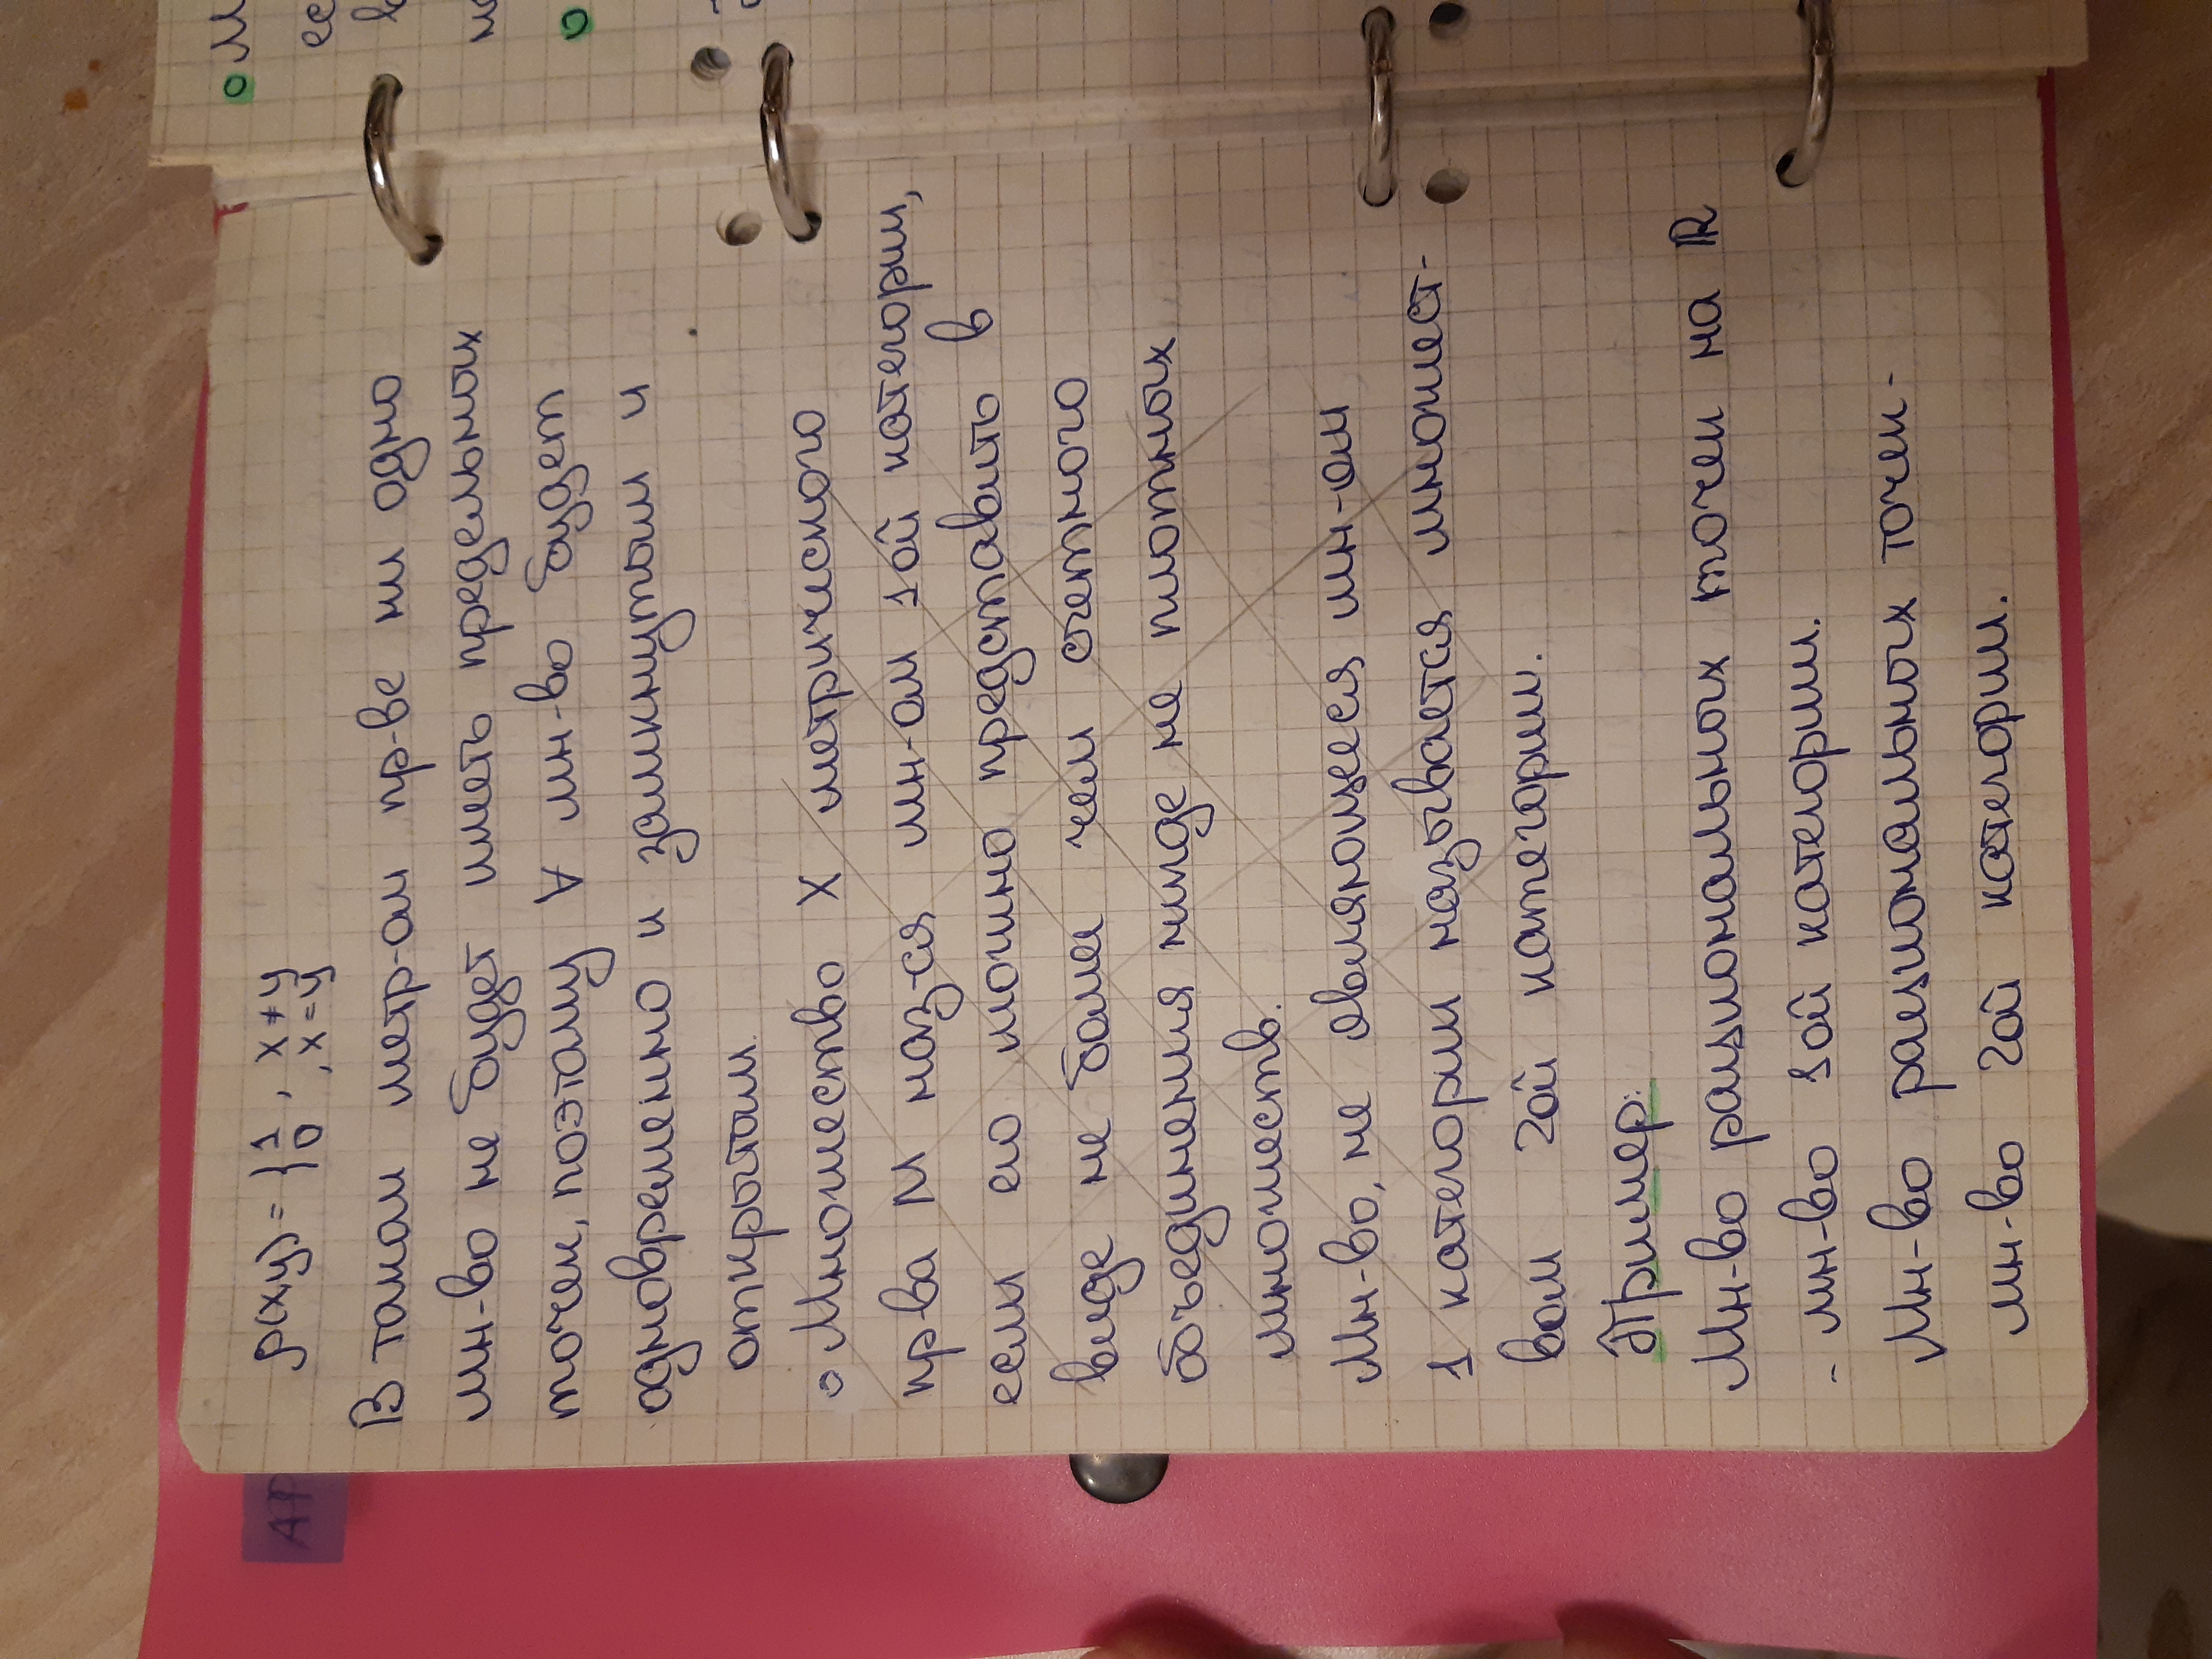 ρ(x,y) = { 1 , x ≠ y
0 , x = y
В таком метр-ом пр-ве ни одно
мн-во не будет иметь предельных
точек, поэтому ∀ мн-во будет
одновременно и замкнутым и
открытым.
∘ Множество X метрического
пр-ва M наз-ся мн-ом 1ой категории,
если его можно представить в
виде не более чем счетного
объединения нигде не плотных
множеств.
Мн-во, не являющееся мн-ом
1 категории называется множест-
вом 2ой категории.
Пример:
Мн-во рациональных точек на ℝ
- мн-во 1ой категории.
Мн-во рациональных точек -
мн-во 2ой категории.